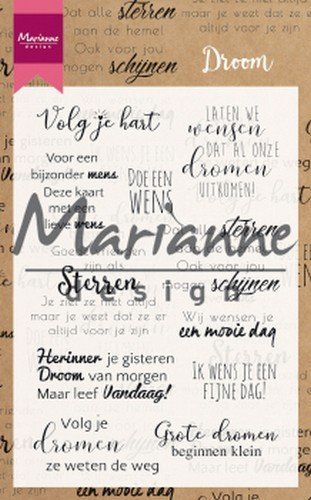 Marianne
design
Dat alle sterren
aan de hemel
Ook voor jou
mogen schijnen
Droom
Volg je hart
LATEN WE
wensen
DAT AL ONZE
dromen
UITKOMEN!
Voor een
bijzonder mens
Deze kaart
met een
lieve wens
DOE EEN
WENS
Marianne
design
sterren
Ook voor jou
schijnen
zijn als
Sterren
Je ziet ze niet altijd
maar je weet dat ze er
altijd voor je zijn
Wij wensen je
een mooie dag
Herinner je gisteren
Droom van morgen
Maar leef Vandaag!
IK WENS JE EEN
FIJNE DAG!
Volg je
dromen
ze weten de weg
Grote dromen
beginnen klein